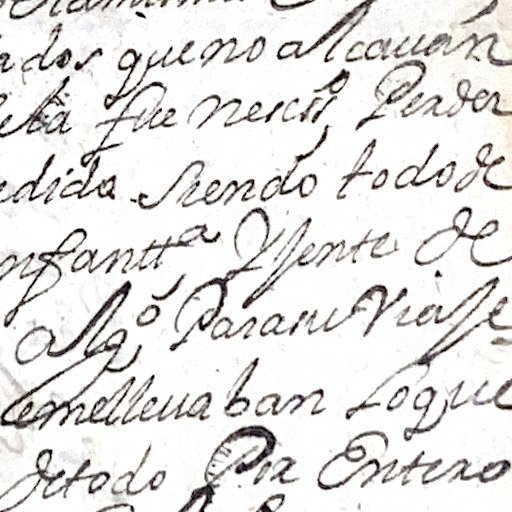 ados que no alcauan
leta fue nescro Perder
edida siendo todo de
nfantta Y Jente de
algo Para su Viaje
semelleuaban Loque
detodo Por Entero